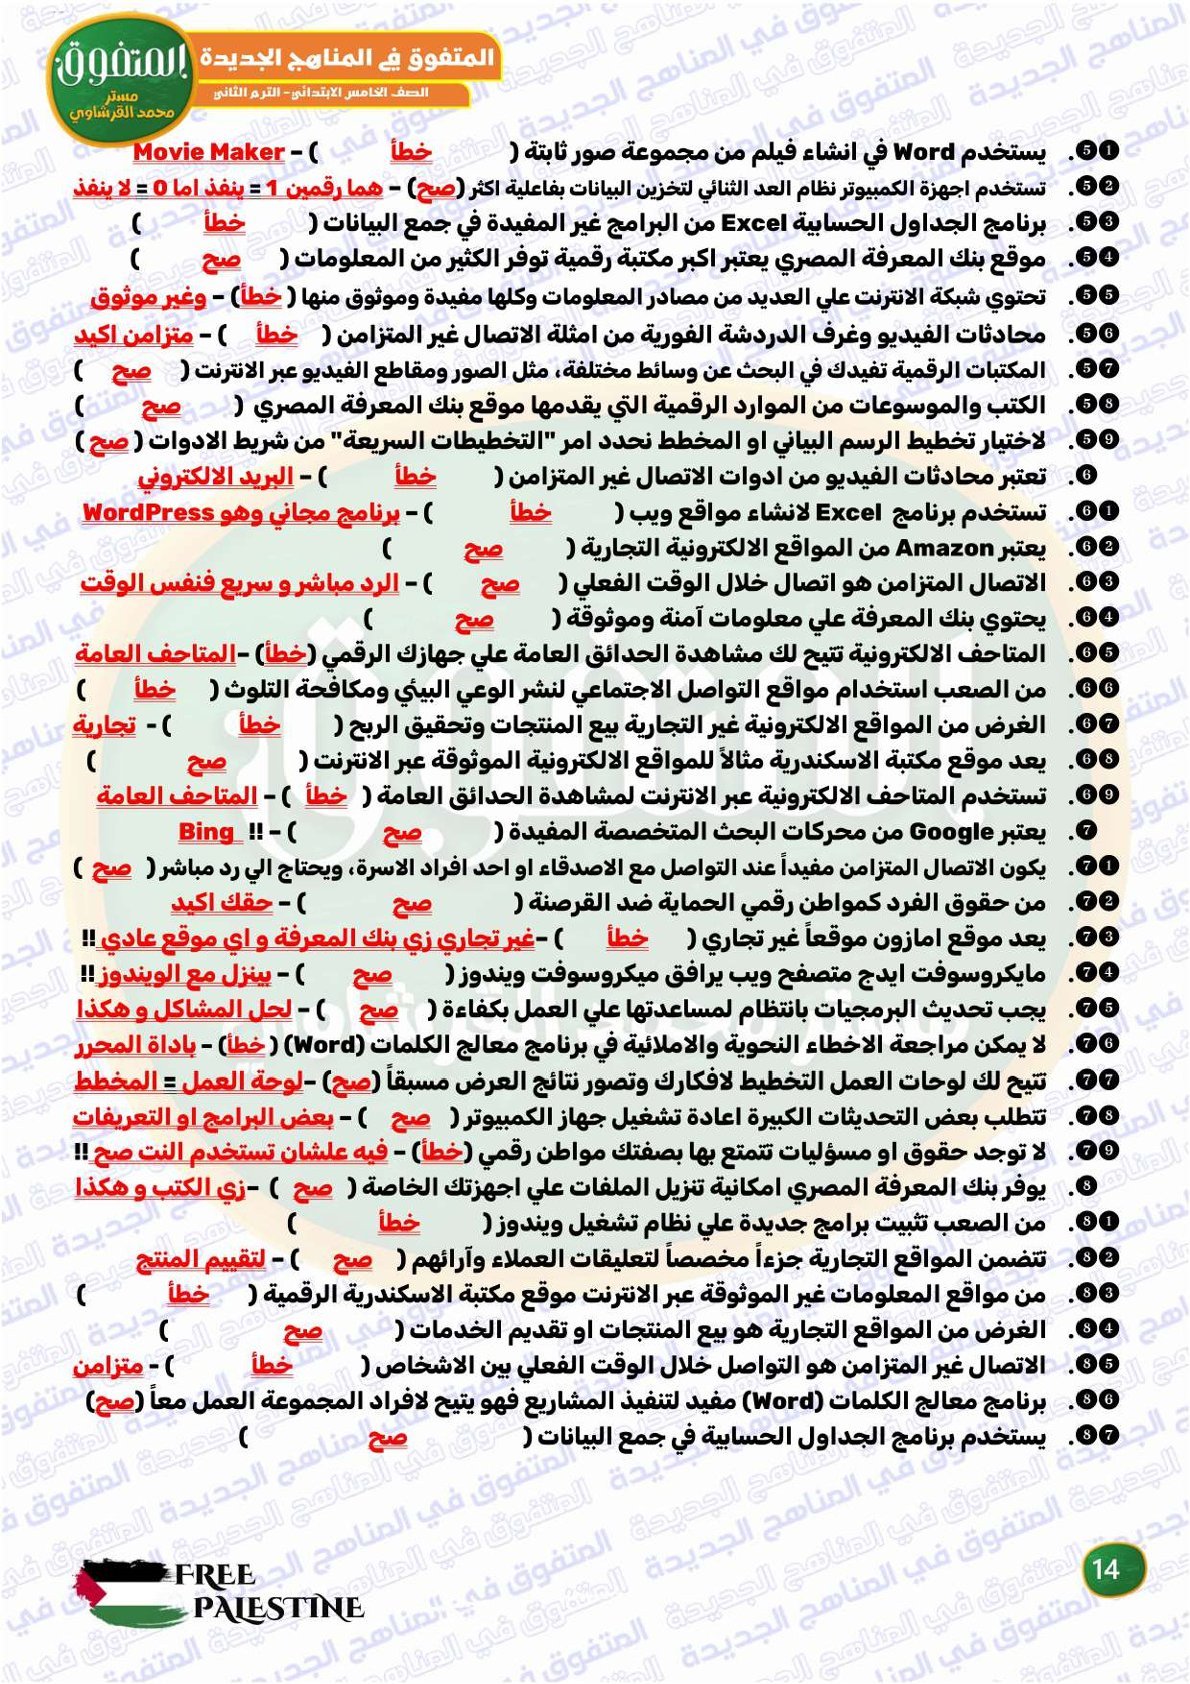 المتفوق
مستر
محمد القرشاوي
المتفوق في المناهج الجديدة
الصف الخامس الابتدائي - الترم الثاني
51. يستخدم Word في انشاء فيلم من مجموعة صور ثابتة ( خطأ ) – Movie Maker
52. تستخدم اجهزة الكمبيوتر نظام العد الثنائي لتخزين البيانات بفاعلية اكثر (صح) – هما رقمين 1 = ينفذ اما 0 = لا ينفذ
53. برنامج الجداول الحسابية Excel من البرامج غير المفيدة في جمع البيانات ( خطأ )
54. موقع بنك المعرفة المصري يعتبر اكبر مكتبة رقمية توفر الكثير من المعلومات ( صح )
55. تحتوي شبكة الانترنت علي العديد من مصادر المعلومات وكلها مفيدة وموثوق منها ( خطأ) – وغير موثوق
56. محادثات الفيديو وغرف الدردشة الفورية من امثلة الاتصال غير المتزامن ( خطأ ) – متزامن اكيد
57. المكتبات الرقمية تفيدك في البحث عن وسائط مختلفة، مثل الصور ومقاطع الفيديو عبر الانترنت ( صح )
58. الكتب والموسوعات من الموارد الرقمية التي يقدمها موقع بنك المعرفة المصري ( صح )
59. لاختيار تخطيط الرسم البياني او المخطط نحدد امر "التخطيطات السريعة" من شريط الادوات ( صح )
6. تعتبر محادثات الفيديو من ادوات الاتصال غير المتزامن ( خطأ ) – البريد الالكتروني
61. تستخدم برنامج Excel لانشاء مواقع ويب ( خطأ ) – برنامج مجاني وهو WordPress
62. يعتبر Amazon من المواقع الالكترونية التجارية ( صح )
63. الاتصال المتزامن هو اتصال خلال الوقت الفعلي ( صح ) – الرد مباشر و سريع فنفس الوقت
64. يحتوي بنك المعرفة علي معلومات آمنة وموثوقة ( صح )
65. المتاحف الالكترونية تتيح لك مشاهدة الحدائق العامة علي جهازك الرقمي (خطأ) –المتاحف العامة
66. من الصعب استخدام مواقع التواصل الاجتماعي لنشر الوعي البيئي ومكافحة التلوث ( خطأ )
67. الغرض من المواقع الالكترونية غير التجارية بيع المنتجات وتحقيق الربح ( خطأ ) - تجارية
68. يعد موقع مكتبة الاسكندرية مثالاً للمواقع الالكترونية الموثوقة عبر الانترنت ( صح )
69. تستخدم المتاحف الالكترونية عبر الانترنت لمشاهدة الحدائق العامة ( خطأ ) – المتاحف العامة
7. يعتبر Google من محركات البحث المتخصصة المفيدة ( صح ) – !! Bing
71. يكون الاتصال المتزامن مفيداً عند التواصل مع الاصدقاء او احد افراد الاسرة، ويحتاج الي رد مباشر ( صح )
72. من حقوق الفرد كمواطن رقمي الحماية ضد القرصنة ( صح ) – حقك اكيد
73. يعد موقع امازون موقعاً غير تجاري ( خطأ ) –غير تجاري زي بنك المعرفة و اي موقع عادي !!
74. مايكروسوفت ايدج متصفح ويب يرافق ميكروسوفت ويندوز ( صح ) – بينزل مع الويندوز !!
75. يجب تحديث البرمجيات بانتظام لمساعدتها علي العمل بكفاءة ( صح ) – لحل المشاكل و هكذا
76. لا يمكن مراجعة الاخطاء النحوية والاملائية في برنامج معالج الكلمات (Word) ( خطأ) – باداة المحرر
77. تتيح لك لوحات العمل التخطيط لافكارك وتصور نتائج العرض مسبقاً (صح) –لوحة العمل = المخطط
78. تتطلب بعض التحديثات الكبيرة اعادة تشغيل جهاز الكمبيوتر ( صح ) – بعض البرامج او التعريفات
79. لا توجد حقوق او مسؤليات تتمتع بها بصفتك مواطن رقمي (خطأ) – فيه علشان تستخدم النت صح !!
8. يوفر بنك المعرفة المصري امكانية تنزيل الملفات علي اجهزتك الخاصة ( صح ) –زي الكتب و هكذا
81. من الصعب تثبيت برامج جديدة علي نظام تشغيل ويندوز ( خطأ )
82. تتضمن المواقع التجارية جزءاً مخصصاً لتعليقات العملاء وآرائهم ( صح ) – لتقييم المنتج
83. من مواقع المعلومات غير الموثوقة عبر الانترنت موقع مكتبة الاسكندرية الرقمية ( خطأ )
84. الغرض من المواقع التجارية هو بيع المنتجات او تقديم الخدمات ( صح )
85. الاتصال غير المتزامن هو التواصل خلال الوقت الفعلي بين الاشخاص ( خطأ ) - متزامن
86. برنامج معالج الكلمات (Word) مفيد لتنفيذ المشاريع فهو يتيح لافراد المجموعة العمل معاً (صح)
87. يستخدم برنامج الجداول الحسابية في جمع البيانات ( صح )
FREE
PALESTINE
14